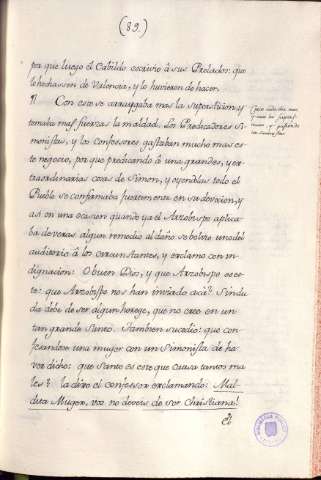 (89.)
por que luego el Cabildo escrivio à sus Prelados que
los echassen de Valencia, y lo huvieron de hacer.
¶ Con esto se arraygaba mas la supersticion, y
tomaba mas fuerzas la maldad. Los Predicadores Si-
monistas, y los Confessores gastaban mucho mas es-
te negocio, por que predicando à una grandes, y ex-
traordinarias cosas de Simon, y oyendolas todo el
Pueblo se confirmaba fuertemente en su devocion, y
asi en una ocasion quando ya el Arzobispo aplica-
ba de veras algun remedio al daño se bolvio uno del
auditorio à los circunstantes, y exclamo con in-
dignacion: O buen Dios, y que Arzobispo es es-
te: que Arzobispo nos han inviado acà? Sin du-
da debe de ser algun herege, que no cree en un
tan grande Santo. Tambien sucedio: que con-
fesandose una muger con un Simonista de ha-
ver dicho: que Santo es este que causa tantos ma-
les? la dixo el confessor exclamando: Mal-
dita Muger, vos no deveis de ser Christiana!
El
Crece cada dia mas
y mas la supers-
ticion y
los Simonistas